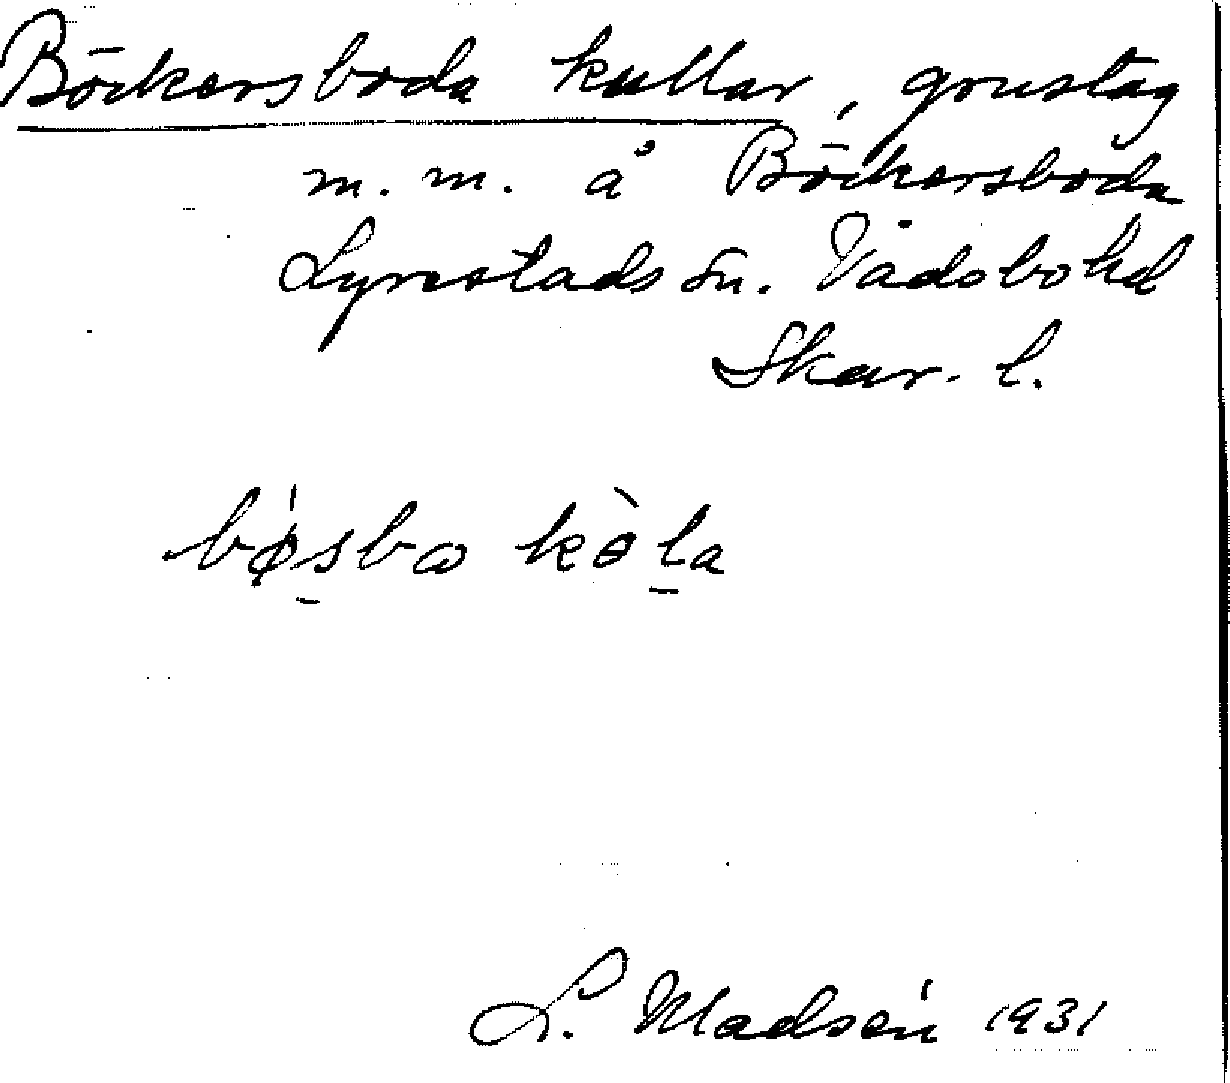 Böckersboda kullar, grustag
m.m. å Böckersboda
Lyrestads sn. Vadsbo hd
Skar. l.
bǿsbω kòla
L. Madsén 1931